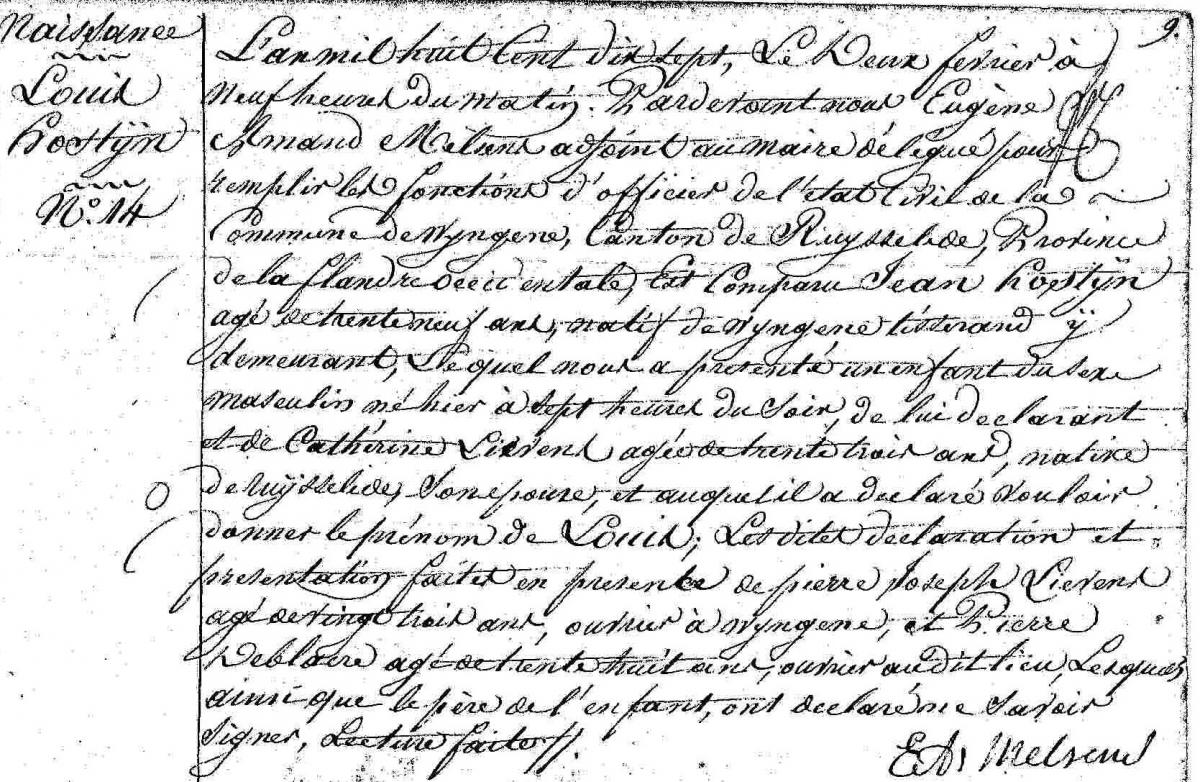 Naissance
Louis
hostÿn
N.° 14
9.
L'an mil huit Cent dix sept, Le Deux fevrier à
neuf heures du matin. Pardevant nous Eugène
Armand Melsens adjoint au maire délégué pour
remplir les fonctions d'officier de l'état Civil de la
Commune de wyngene, Canton de Ruysselede, Province
de la flandre Occidentale, Est Comparu Jean hostÿn
agé de trente neuf ans, natif de wyngene tisserand ÿ
demeurant, Lequel nous a presenté un enfant du sexe
masculin né hier à sept heures du Soir, de lui declarant
et de Cathérine Lievens agée de trente trois ans, native
de ruÿsselede, Son epouse, et auquel il a declaré Vouloir
donner le prénom de Louis; Lesdites declaration et
presentation faites en presence de pierre Joseph Lievens
agé de vingt trois ans, ouvrier à wyngene, et Pierre
Deblaere agé de trente huit ans, ouvrier audit lieu, Lesquels
ainsi que le père de l'enfant, ont declaré ne Savoir
Signer, Lecture faite //.
E A Melsens